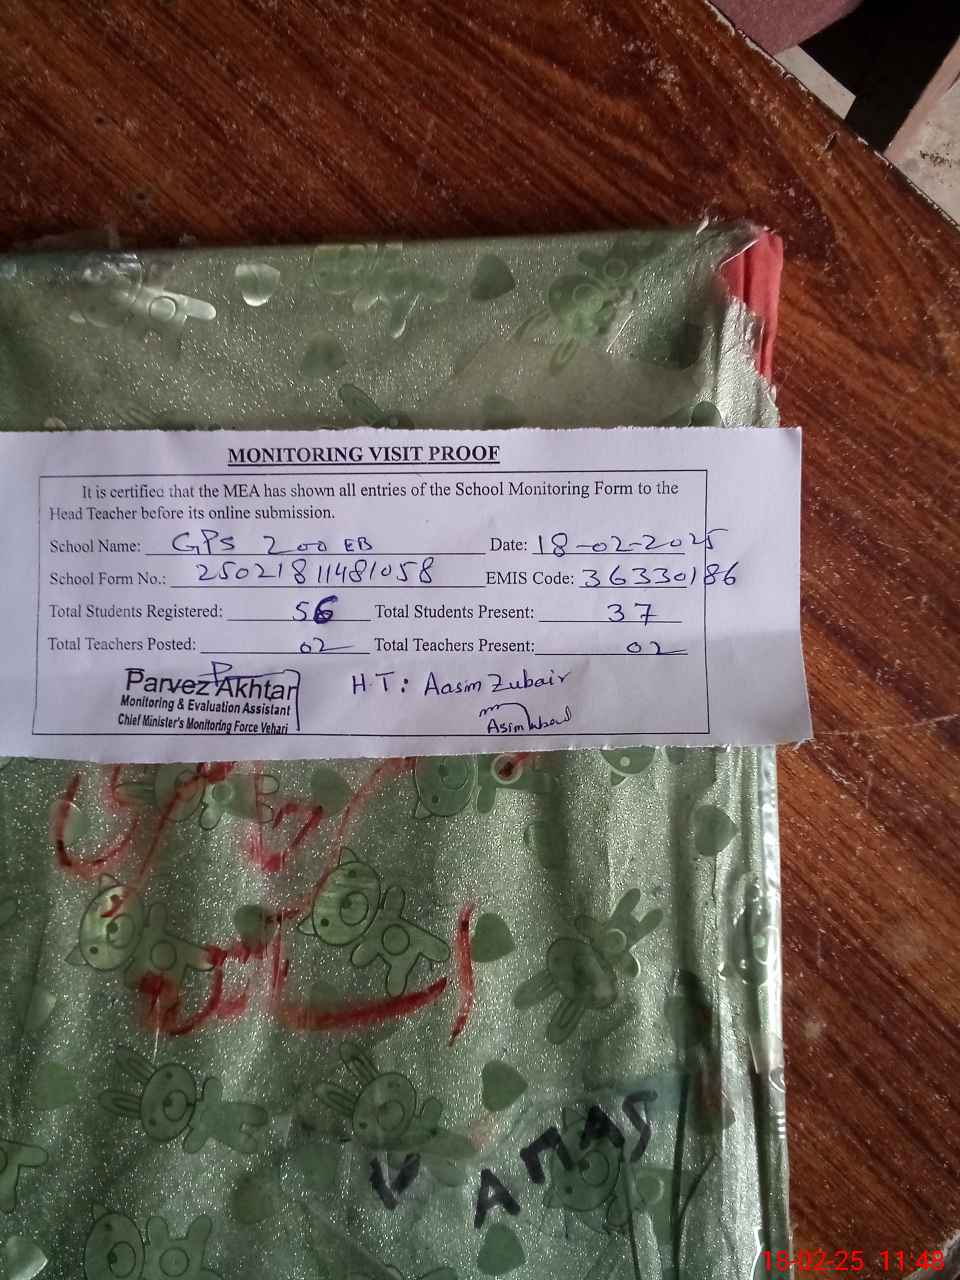 MONITORING VISIT PROOF
It is certified that the MEA has shown all entries of the School Monitoring Form to the
Head Teacher before its online submission.
School Name: GPS 200 EB Date: 18-02-2025
School Form No.: 25021811481058 EMIS Code: 36330186
Total Students Registered: 56 Total Students Present: 37
Total Teachers Posted: 02 Total Teachers Present: 02
Parvez Akhtar H.T: Aasim Zubair
Monitoring & Evaluation Assistant
Chief Minister's Monitoring Force Vehari
حاضری
اساتذہ
18-02-25 11:48